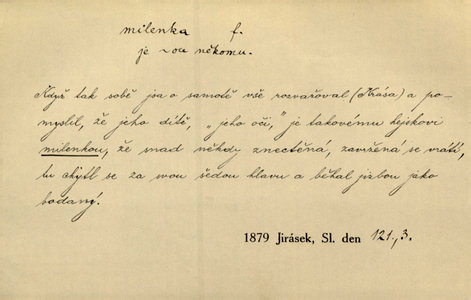 milenka f.
je ~ou někomu.
Když tak sobě jsa o samotě vše rozvažoval (Krása) a po-
myslil, že jeho dítě, „jeho oči," je takovému hejskovi
milenkou, že snad někdy znectěná, zavržená se vrátí,
tu chytl se za svou šedou hlavu a běhal jizbou jako
bodaný.
1879 Jirásek, Sl. den 121., 3.